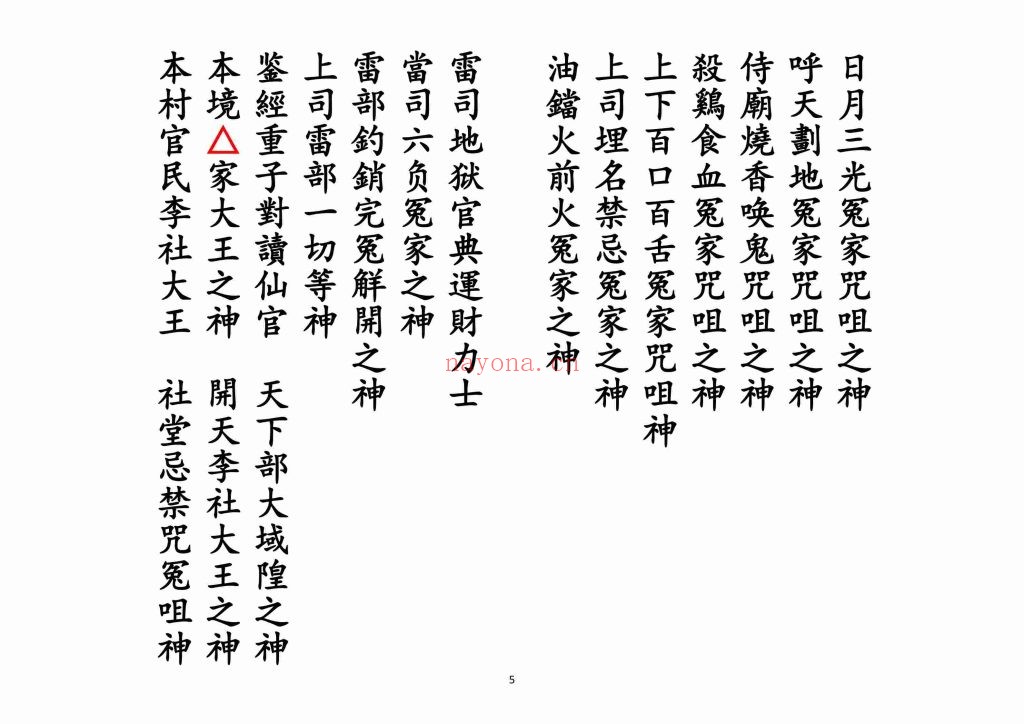 日月三光冤家咒咀之神
呼天劃地冤家咒咀之神
侍廟燒香喚鬼咒咀之神
殺鷄食血冤家咒咀之神
上下百口百舌冤家咒咀神
上司埋名禁忌冤家之神
油鐺火前火冤家之神
雷司地獄官典運財力士
當司六负冤家之神
雷部釣銷完冤觧開之神
上司雷部一切等神
鉴經重子對讀仙官 天下部大域隍之神
本境△家大王之神 開天李社大王之神
本村官民李社大王 社堂忌禁咒冤咀神
nayona.cn
5